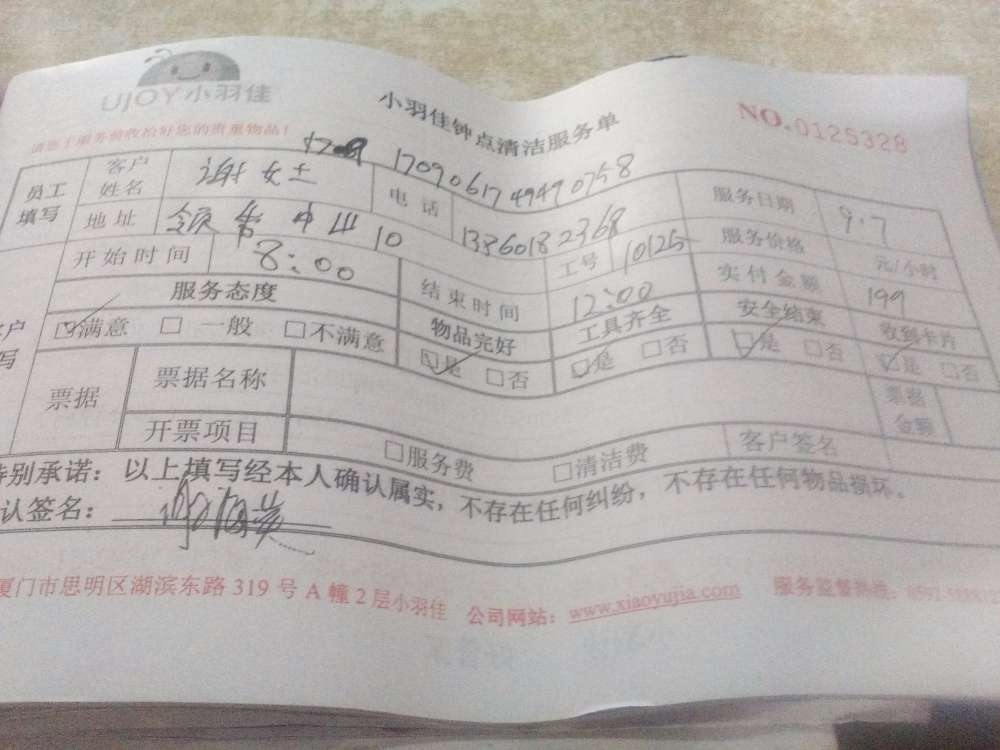 UJOY小羽佳
小羽佳钟点清洁服务单
NO.0125328
1709061749490758
员工填写 客户姓名 谢女士 电话 13360182368 服务日期 9.7
地址 领秀中山10 工号 10125 服务价格 元/小时
开始时间 8:00 结束时间 12:00 实付金额 199
服务态度 物品完好 工具齐全 安全结束 收到卡片
☑满意 □一般 □不满意 ☑是 □否 ☑是 □否 ☑是 □否 ☑是 □否
票据 票据名称 票据金额
开票项目 □服务费 □清洁费 客户签名
特别承诺：以上填写经本人确认属实，不存在任何纠纷，不存在任何物品损坏。
认签名：
厦门市思明区湖滨东路319号A幢2层小羽佳 公司网站：www.xiaoyujia.com 服务监督热线：